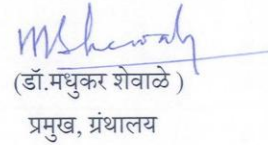 MShewale
(डॉ.मधुकर शेवाळे )
प्रमुख, ग्रंथालय